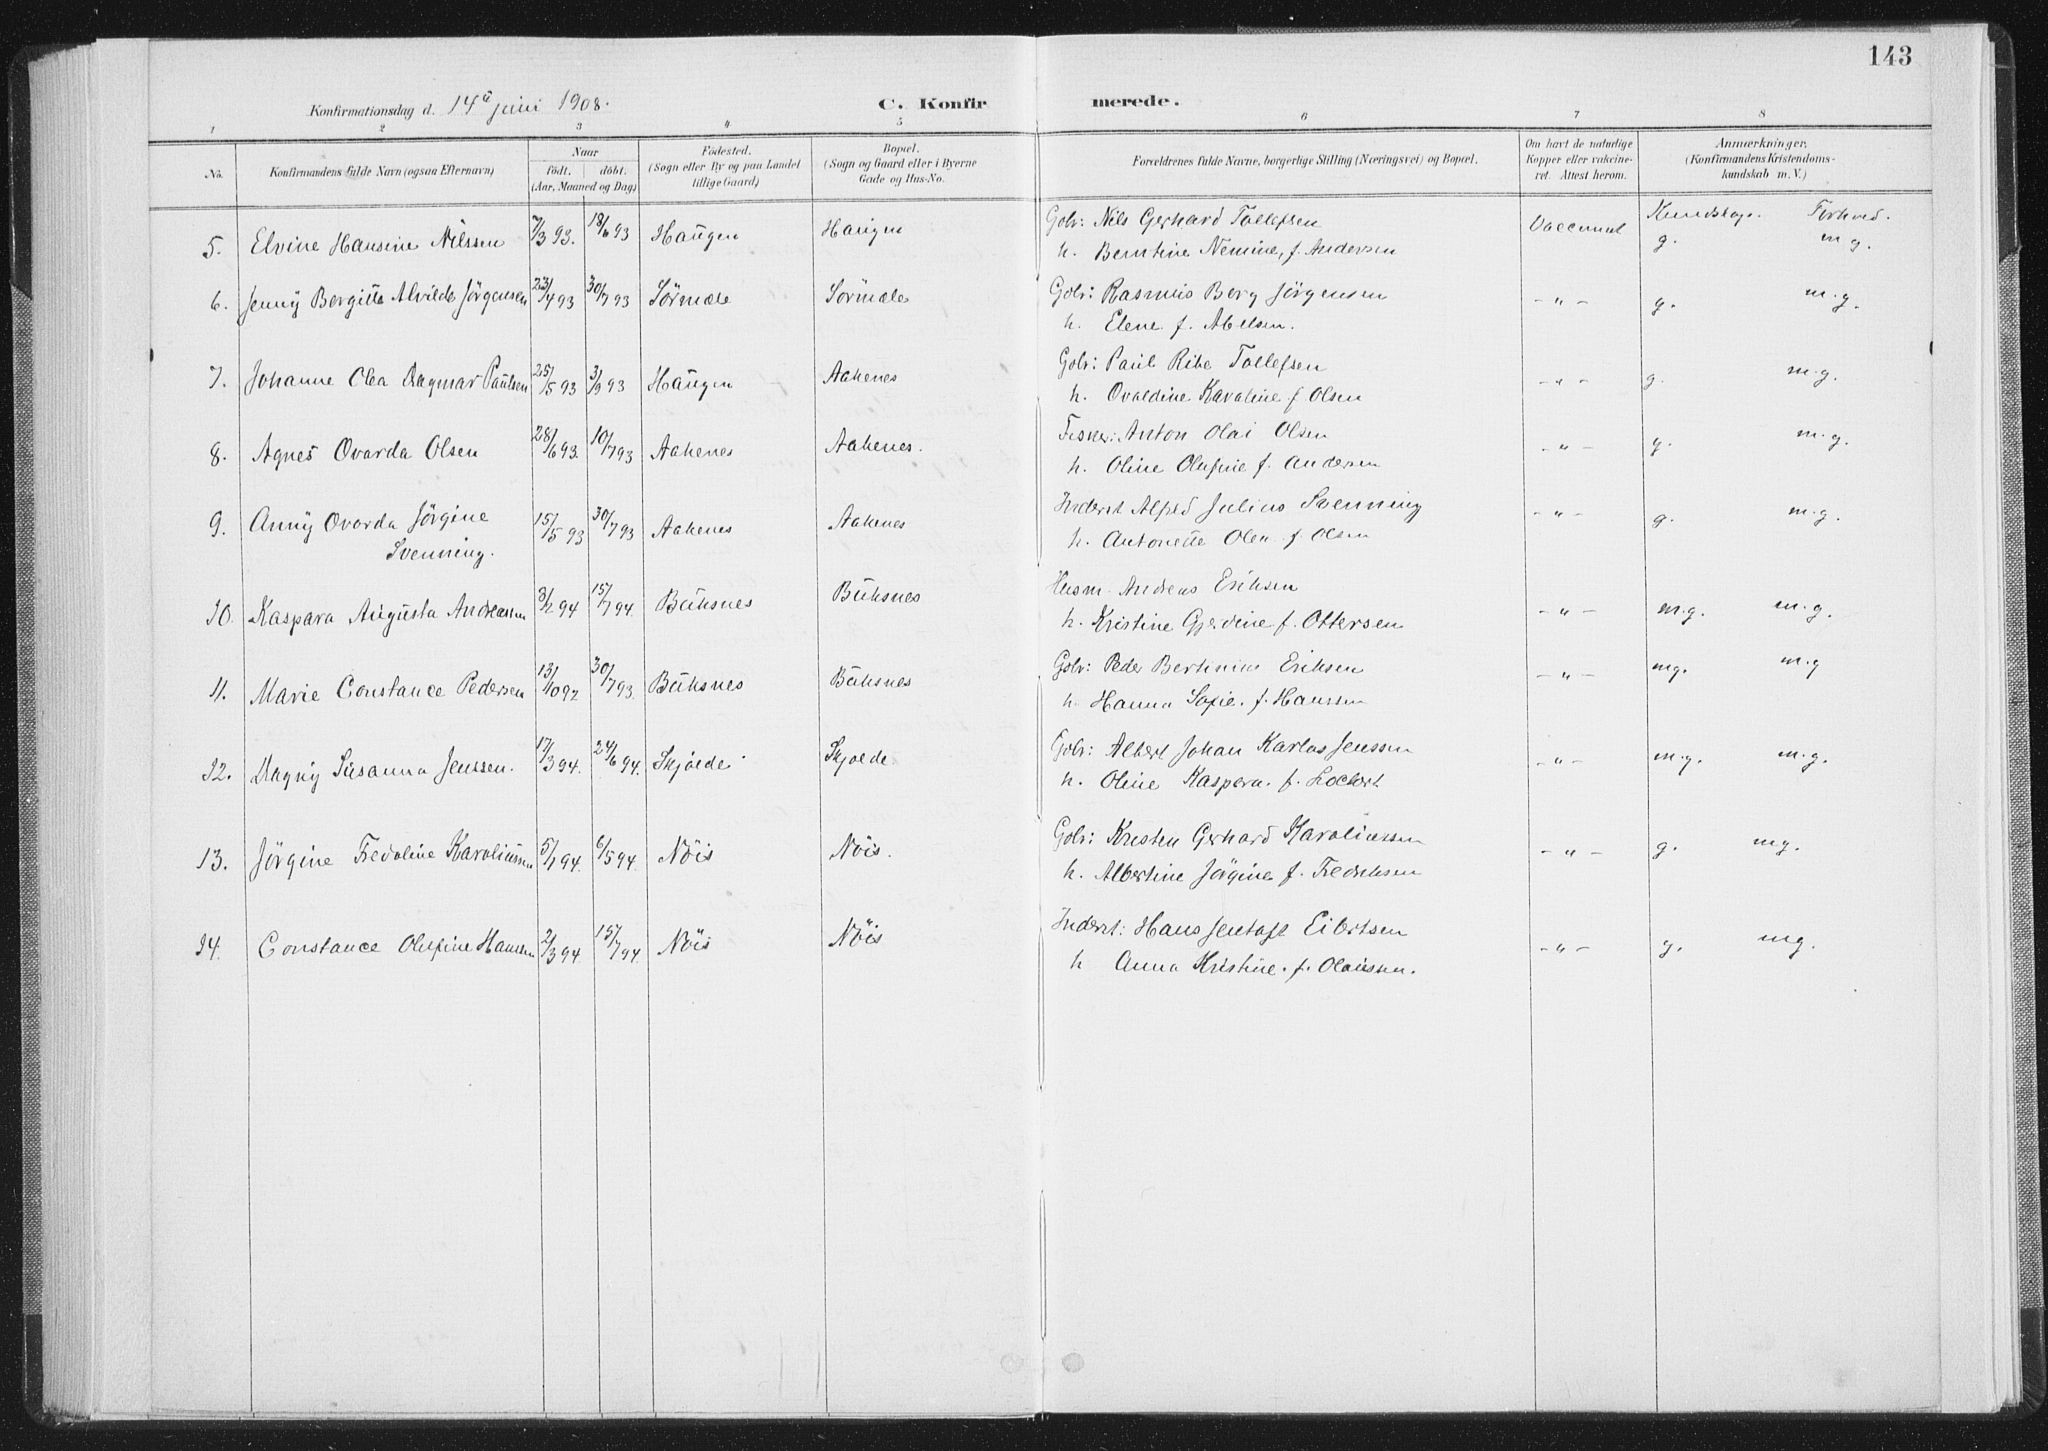 143
Konfirmationsdag d. 14de juni 1908. C. Konfirmerede.
1 2 3 4 5 6 7 8
No. Konfirmandens fulde Navn (ogsaa Efternavn) Naar födt. döbt. (Aar, Maaned og Dag) Födested. (Sogn eller By og paa Landet tillige Gaard) Bopæl. (Sogn og Gaard eller i Byerne Gade og Hus-No. Forældrenes fulde Navne, borgerlige Stilling (Næringsvei) og Bopæl. Om havt de naturlige Kopper eller vakcineret. Attest herom. Anmærkninger. (Konfirmandens Kristendomskundskab m. V.)
Kundskap. Forhold.
5. Elvine Hansine Nilssen 7/3 93. 18/6 93 Haugen Haugen Gbr: Nils Gerhard Tollefsen Vaccinert g. m g.
h. Berntine Nemine, f. Andersen
6. Jenny Bergitte Alvilde Jörgensen 23/4 93 30/7 93 Sörmæle Sörmæle Gbr: Rasmus Berg Jörgensen - " - g. m.g.
h. Elene f. Abelsen.
7. Johanne Olea Dagmar Paulsen 25/5 93 3/9 93 Haugen Aakenes Gbr: Paul Ribe Tollefsen - " - g. m.g.
h. Ovaldine Karoline f Olsen
8. Agnes Ovarda Olsen 28/6 93. 10/7 93 Aakenes Aakenes. Fisker: Anton Olai Olsen - " - g. m.g.
h. Oline Olufine f. Andersen
9. Anny Ovarda Jörgine 15/5 93 30/7 93 Aakenes Aakenes Inderst Alfred Julius Svenning - " - g. m.g.
Svenning. h. Antonette Olea f. Olsen
10. Kaspara Augusta Andreassen 3/2 94 15/7 94. Buksnes Buksnes Husm. Andreas Eriksen - " - m.g. m.g.
h. Kristine Gjerdine f. Ottersen
11. Marie Constance Pedersen 13/10 92 30/7 93. Buksnes Buksnes Gbr: Peder Bertinius Eriksen - " - mg. m.g
h. Hanna Sofie. f. Hanssen
12. Dagny Susanna Jenssen. 17/3 94. 24/6 94. Skjolde Skjolde Gbr: Albert Johan Karlos Jenssen - " - m.g. m.g.
h. Oline Kaspara. f. Lockert
13. Jörgine Fredoline Karoliussen 5/1 94. 6/5 94. Nöis Nöis. Gbr: Kristen Gerhard Karoliussen - " - g. mg.
h. Albertine Jörgine f. Fredriksen
14. Constance Olufine Hanssen 2/3 94. 15/7 94. Nöis Nöis Inderst: Hans Jentoft Eibertsen - " - g. mg.
h Anna Kristine. f. Olaissen.